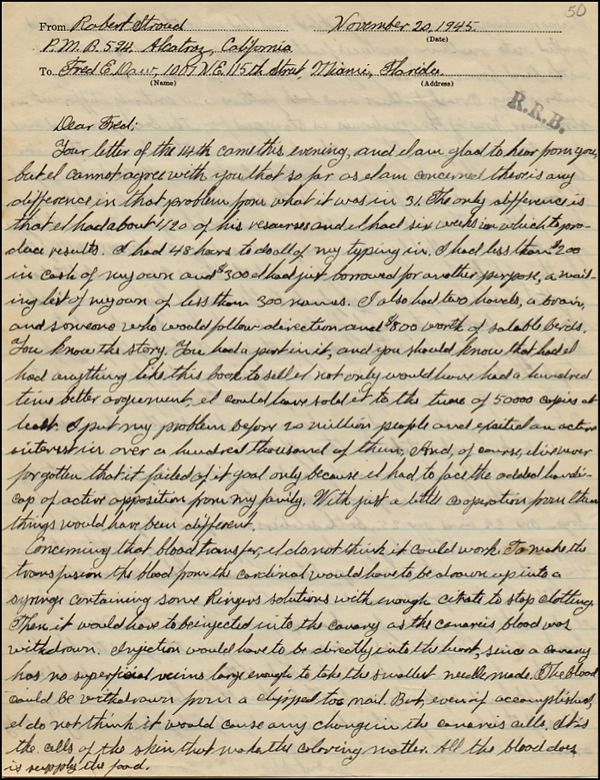 50
From Robert Stroud November 20, 1945.
(Date)
P.M.B. 594, Alcatraz, California
To Fred E. Daw, 1017 N.E. 115th Street, Miami, Florida.
(Name) (Address)
R.R.B.
Dear Fred;
Your letter of the 14th came this evening, and I am glad to hear from you,
but I cannot agree with you that so far as I am concerned there is any
difference in that problem from what it was in 31. The only difference is
that I had about 1/20 of his resources and I had six weeks in which to pro-
duce results. I had 48 hours to do all of my typing in. I had less than $200
in cash of my own and $300 I had just borrowed for another purpose, a mail-
ing list of my own of less than 300 names. I also had two hands, a brain,
and someone who would follow direction and $800 worth of salable birds.
You know the story. You had a part in it, and you should know that had I
had anything like this book to sell I not only would have had a hundred
time better argument, I could have sold it to the tune of 50000 copies at
least. I put my problem before 20 million people and excited an active
interest in over a hundred thousand of them. And, of course, I've never
forgotten that it failed of it goal only because I had to face the added handi-
cap of active opposition from my family. With just a little cooperation from them
things would have been different.
Concerning that blood transfer, I do not think it could work. To make the
transfusion the blood from the cardinal would have to be drawn up into a
syringe containing some Ringers solutions with enough citrate to stop clotting.
Then it would have to be injected into the canary as the canaries blood was
withdrawn. Injection would have to be directly into the heart, since a canary
has no superficial veins large enough to take the smallest needle made. The blood
could be withdrawn from a clipped toe nail. But, even if accomplished,
I do not think it would cause any change in the canaries cells. It is
the cells of the skin that make the coloring matter. All the blood does
is supply the food.